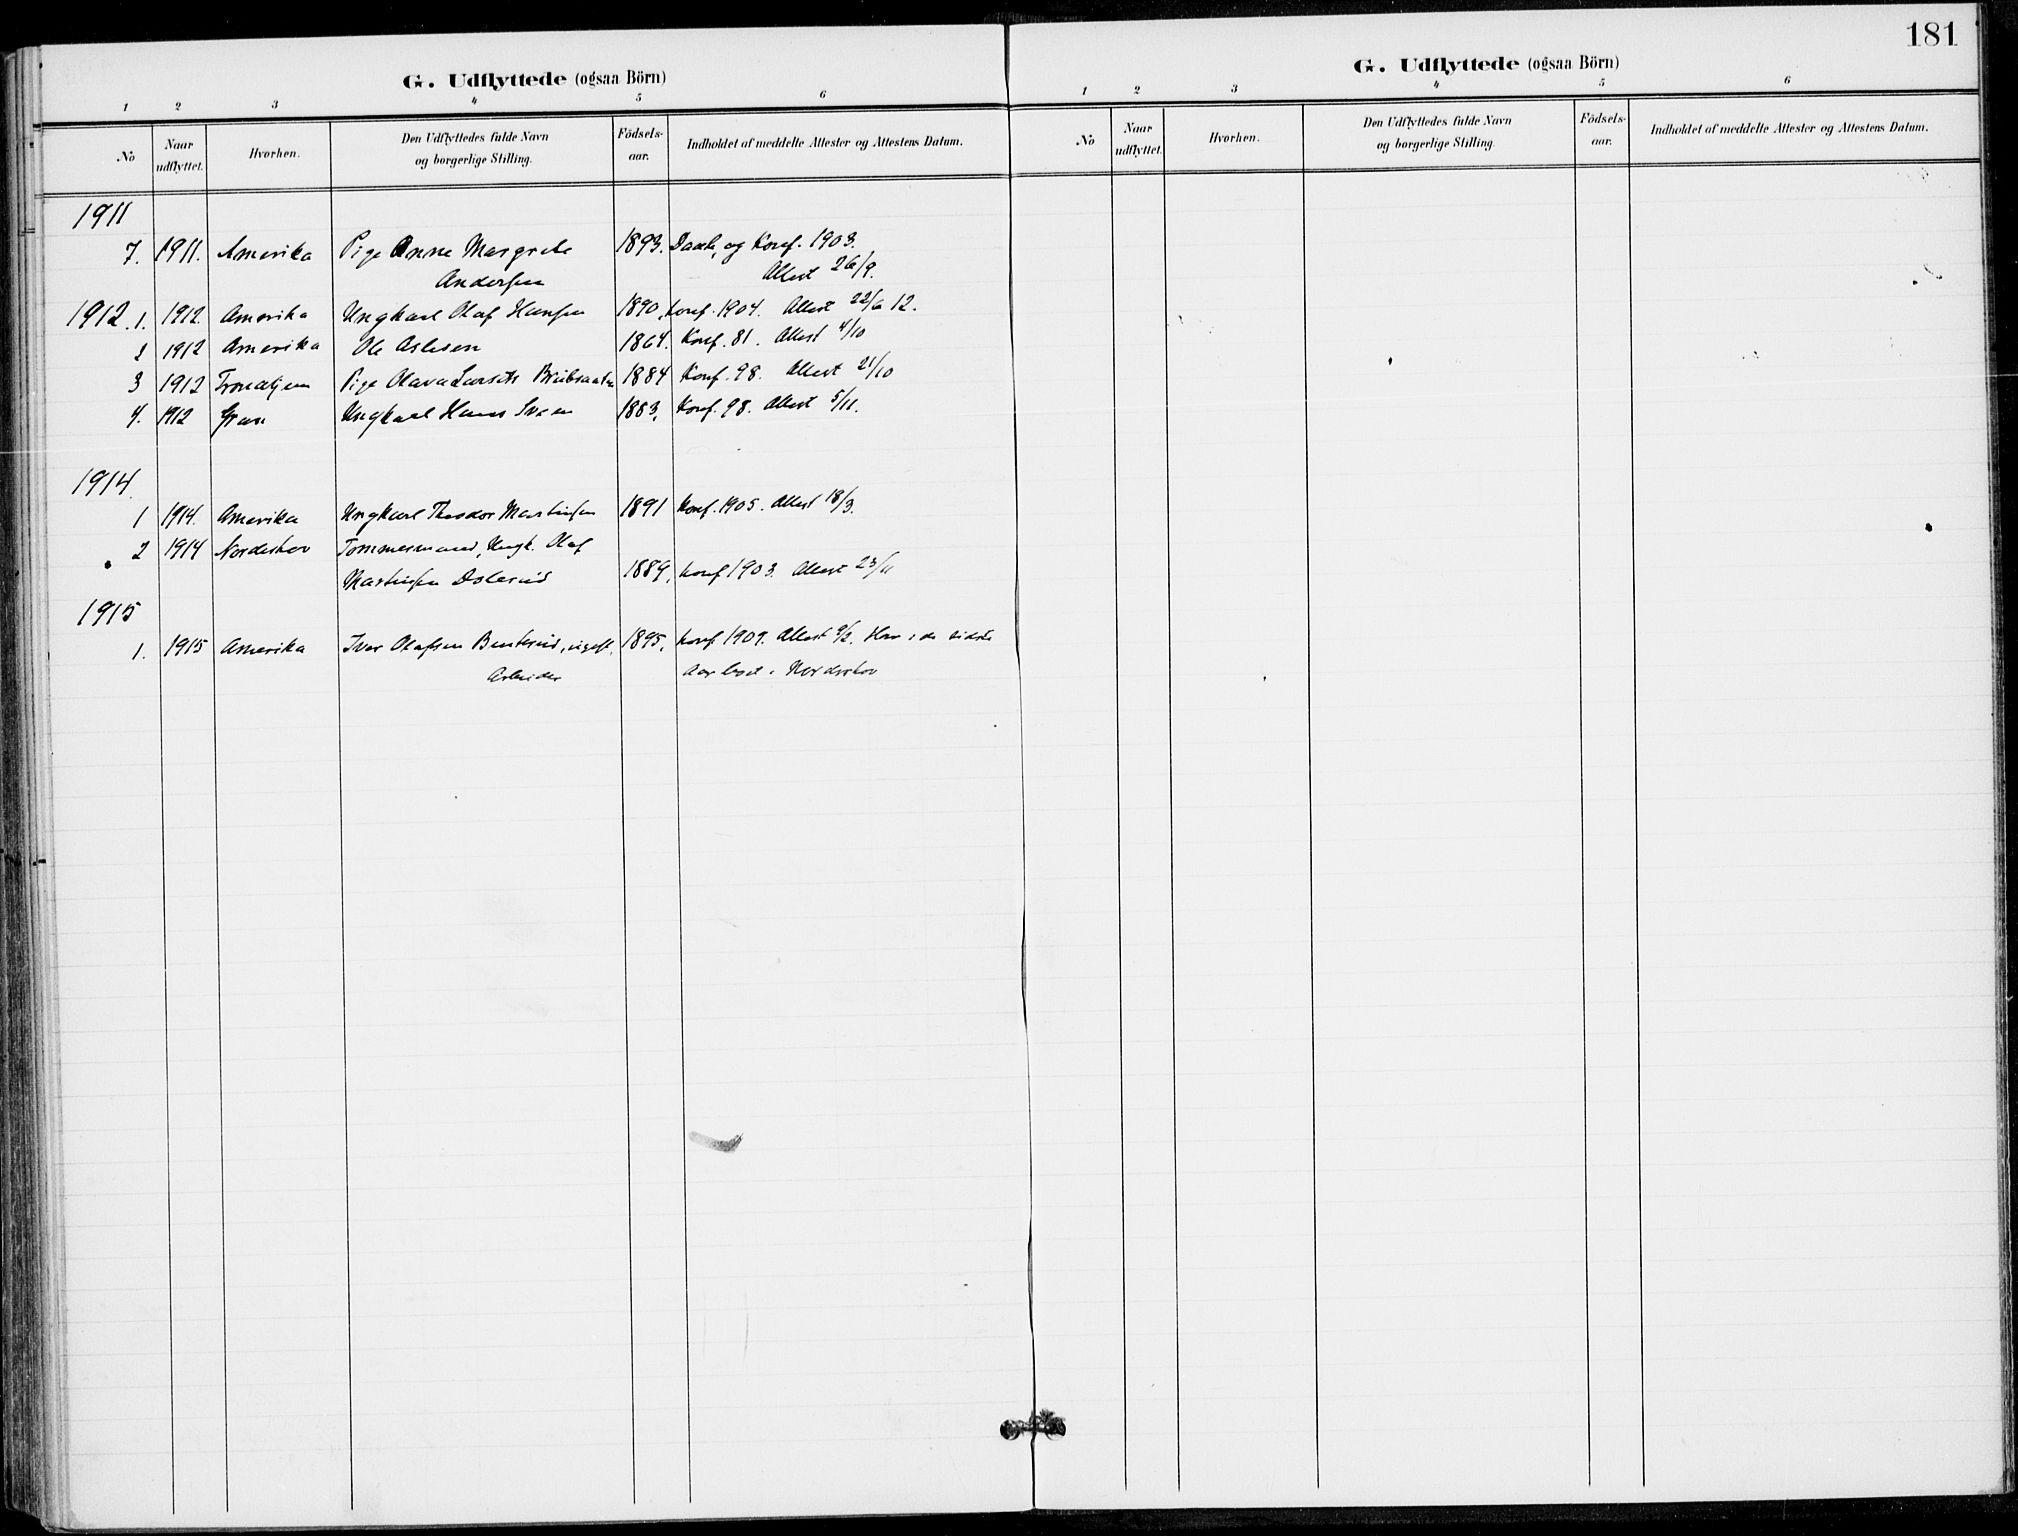 181
G. Udflyttede (ogsaa Börn)
1 2 3 4 5 6
No Naar udflyttet. Hvorhen. Den Udflyttedes fulde Navn og borgerlige Stilling. Födsels-aar. Indholdet af meddelte Attester og Attestens Datum.
1911
7. 1911. Amerika Pige Anne Margrete 1893. Daab, og Konf. 1903.
Andersen Attest 26/9.
1912. 1. 1912 Amerika Ungkarl Olaf Hansen 1890, Konf. 1904. Attest 22/6 12.
2 1912 Amerika Ole Aslesen 1864. Konf. 81. Attest 4/10
3 1912 Trondhjem Pige Olava Larsdt 1884 Konf. 98. Attest 21/10
4. 1912 Gran Ungkarl Hans Sveen 1883, Konf. 98. Attest 5/11.
1914.
1 1914. Amerika Ungkarl Theodor Martinsen 1891 Konf. 1905. Attest 18/3.
2 1914 Norderhov Tømmermand, Ungk. Olaf
Martinsen 1889, Konf 1903. Attest 23/11
1915
1. 1915 Amerika Iver Olafsen ugift, 1895, Konf 1909. Attest 9/2. Har i de sidste
Arbeider Aar boet i Norderhov
G. Udflyttede (ogsaa Börn)
1 2 3 4 5 6
No Naar udflyttet. Hvorhen. Den Udflyttedes fulde Navn og borgerlige Stilling. Födsels-aar. Indholdet af meddelte Attester og Attestens Datum.